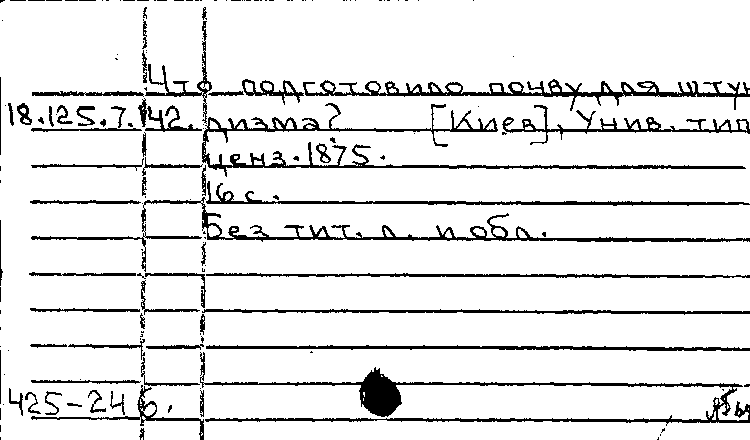 Что подготовило почву для штун
18.125.7.142. дизма? [Киев], Унив. тип
ценз. 1875.
16 с.
Без тит. л. и обл.
425-24 б.